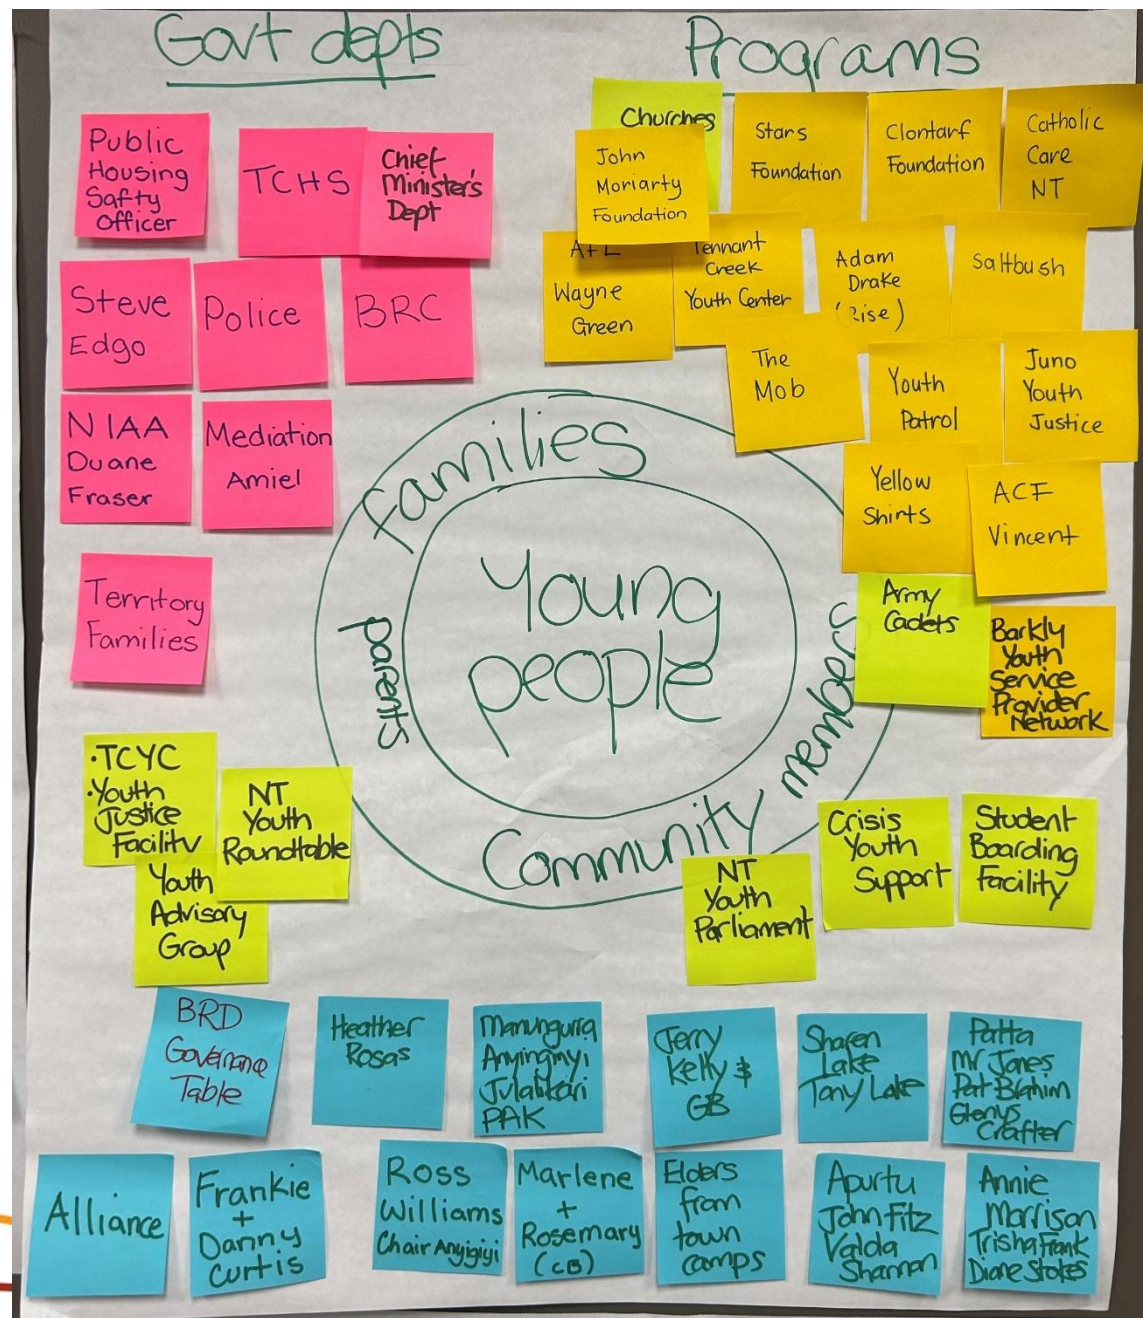 Govt depts
Programs
Public
Housing
Safty
Officer
TCHS
Chief
Minister's
Dept
Steve
Edgo
Police
BRC
NIAA
Duane
Fraser
Mediation
Amiel
Territory
Families
Churches
John
Moriarty
Foundation
Stars
Foundation
Clontarf
Foundation
Catholic
Care
NT
Wayne
Green
Tennant
Creek
Youth Center
Adam
Drake
(Rise)
Saltbush
The
Mob
Youth
Patrol
Juno
Youth
Justice
Yellow
Shirts
ACF
Vincent
Army
Cadets
Barkly
Youth
Service
Provider
Network
Families
parents
Community members
Young
people
·TCYC
·Youth
Justice
Facility
NT
Youth
Roundtable
Youth
Advisory
Group
NT
Youth
Parliament
Crisis
Youth
Support
Student
Boarding
Facility
BRD
Governance
Table
Heather
Rosas
Anyinginyi
Julalikari
PAK
Jerry
Kelly &
GB
Sharen
Lake
Tony Lake
Patta
Mr Jones
Pat Brahim
Glenys
Crafter
Alliance
Frankie
+
Danny
Curtis
Ross
Williams
Chair Anyigiyi
Marlene
+
Rosemary
(CB)
Elders
from
town
camps
Apurtu
John Fitz
Valda
Shannon
Annie
Morrison
Trisha Frank
Diane Stokes